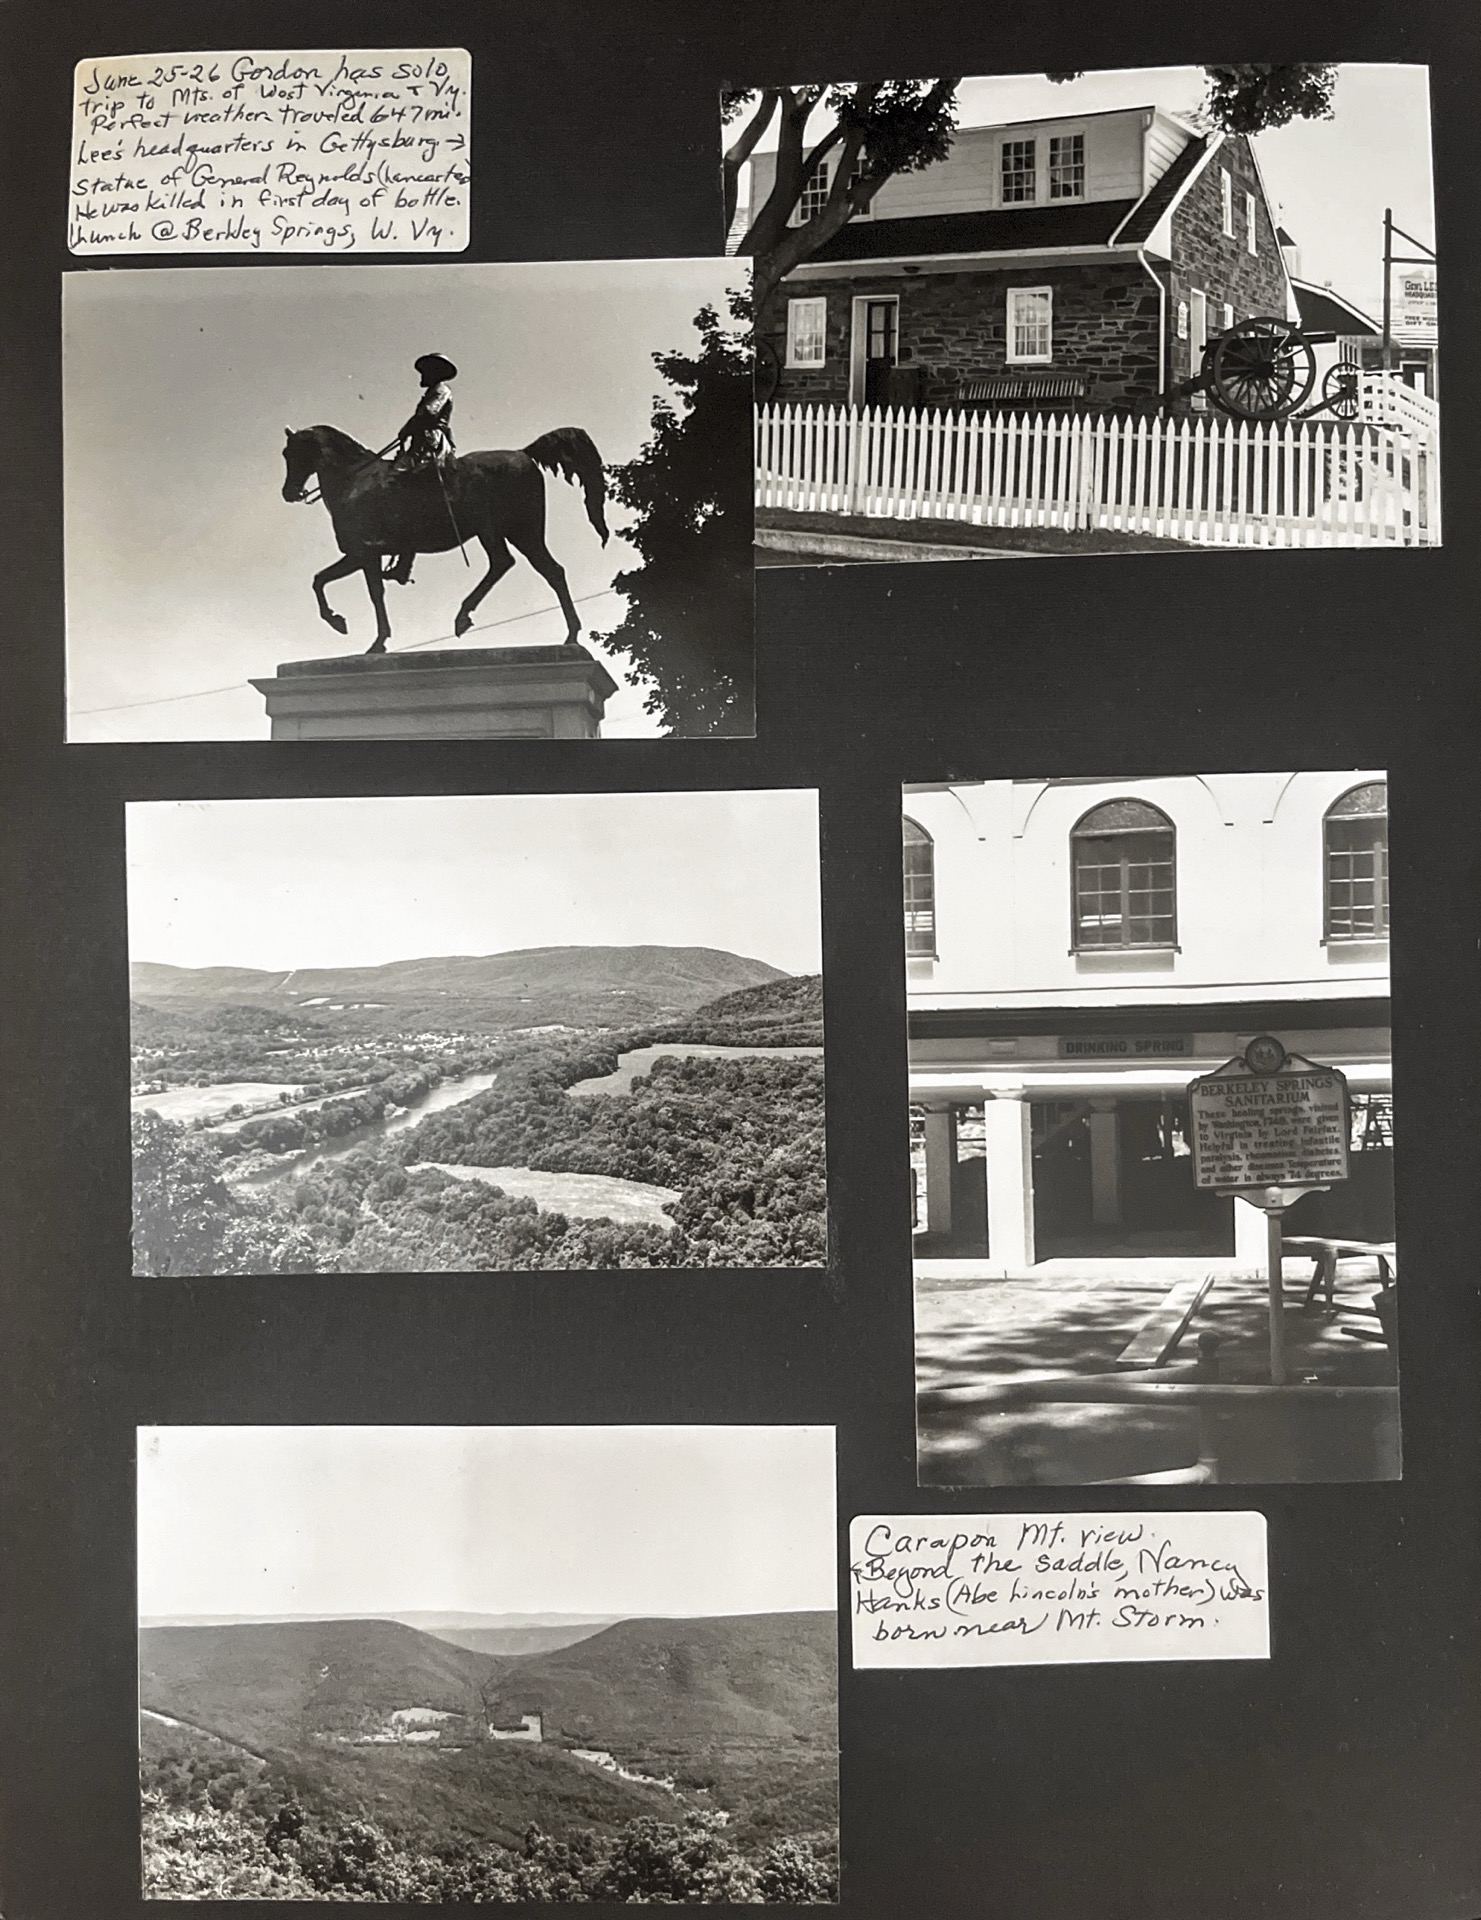 June 25-26 Gordon has solo
trip to Mts. of West Virginia & Vy.
Perfect weather traveled 647 mi.
Lee's headquarters in Gettysburg →
Statue of General Reynolds (Lancaster)
He was killed in first day of battle.
Lunch @ Berkley Springs, W. Vy.
Genl. LEE
HEADQUAR
DRINKING SPRING
BERKELEY SPRINGS
SANITARIUM
These healing springs, visited
by Washington, 1748, were given
to Virginia by Lord Fairfax.
Helpful in treating infantile
paralysis, rheumatism, diabetes,
and other diseases. Temperature
of water is always 74 degrees.
Carapon Mt. view.
Beyond the saddle, Nancy
Hanks (Abe Lincoln's mother) was
born near Mt. Storm.